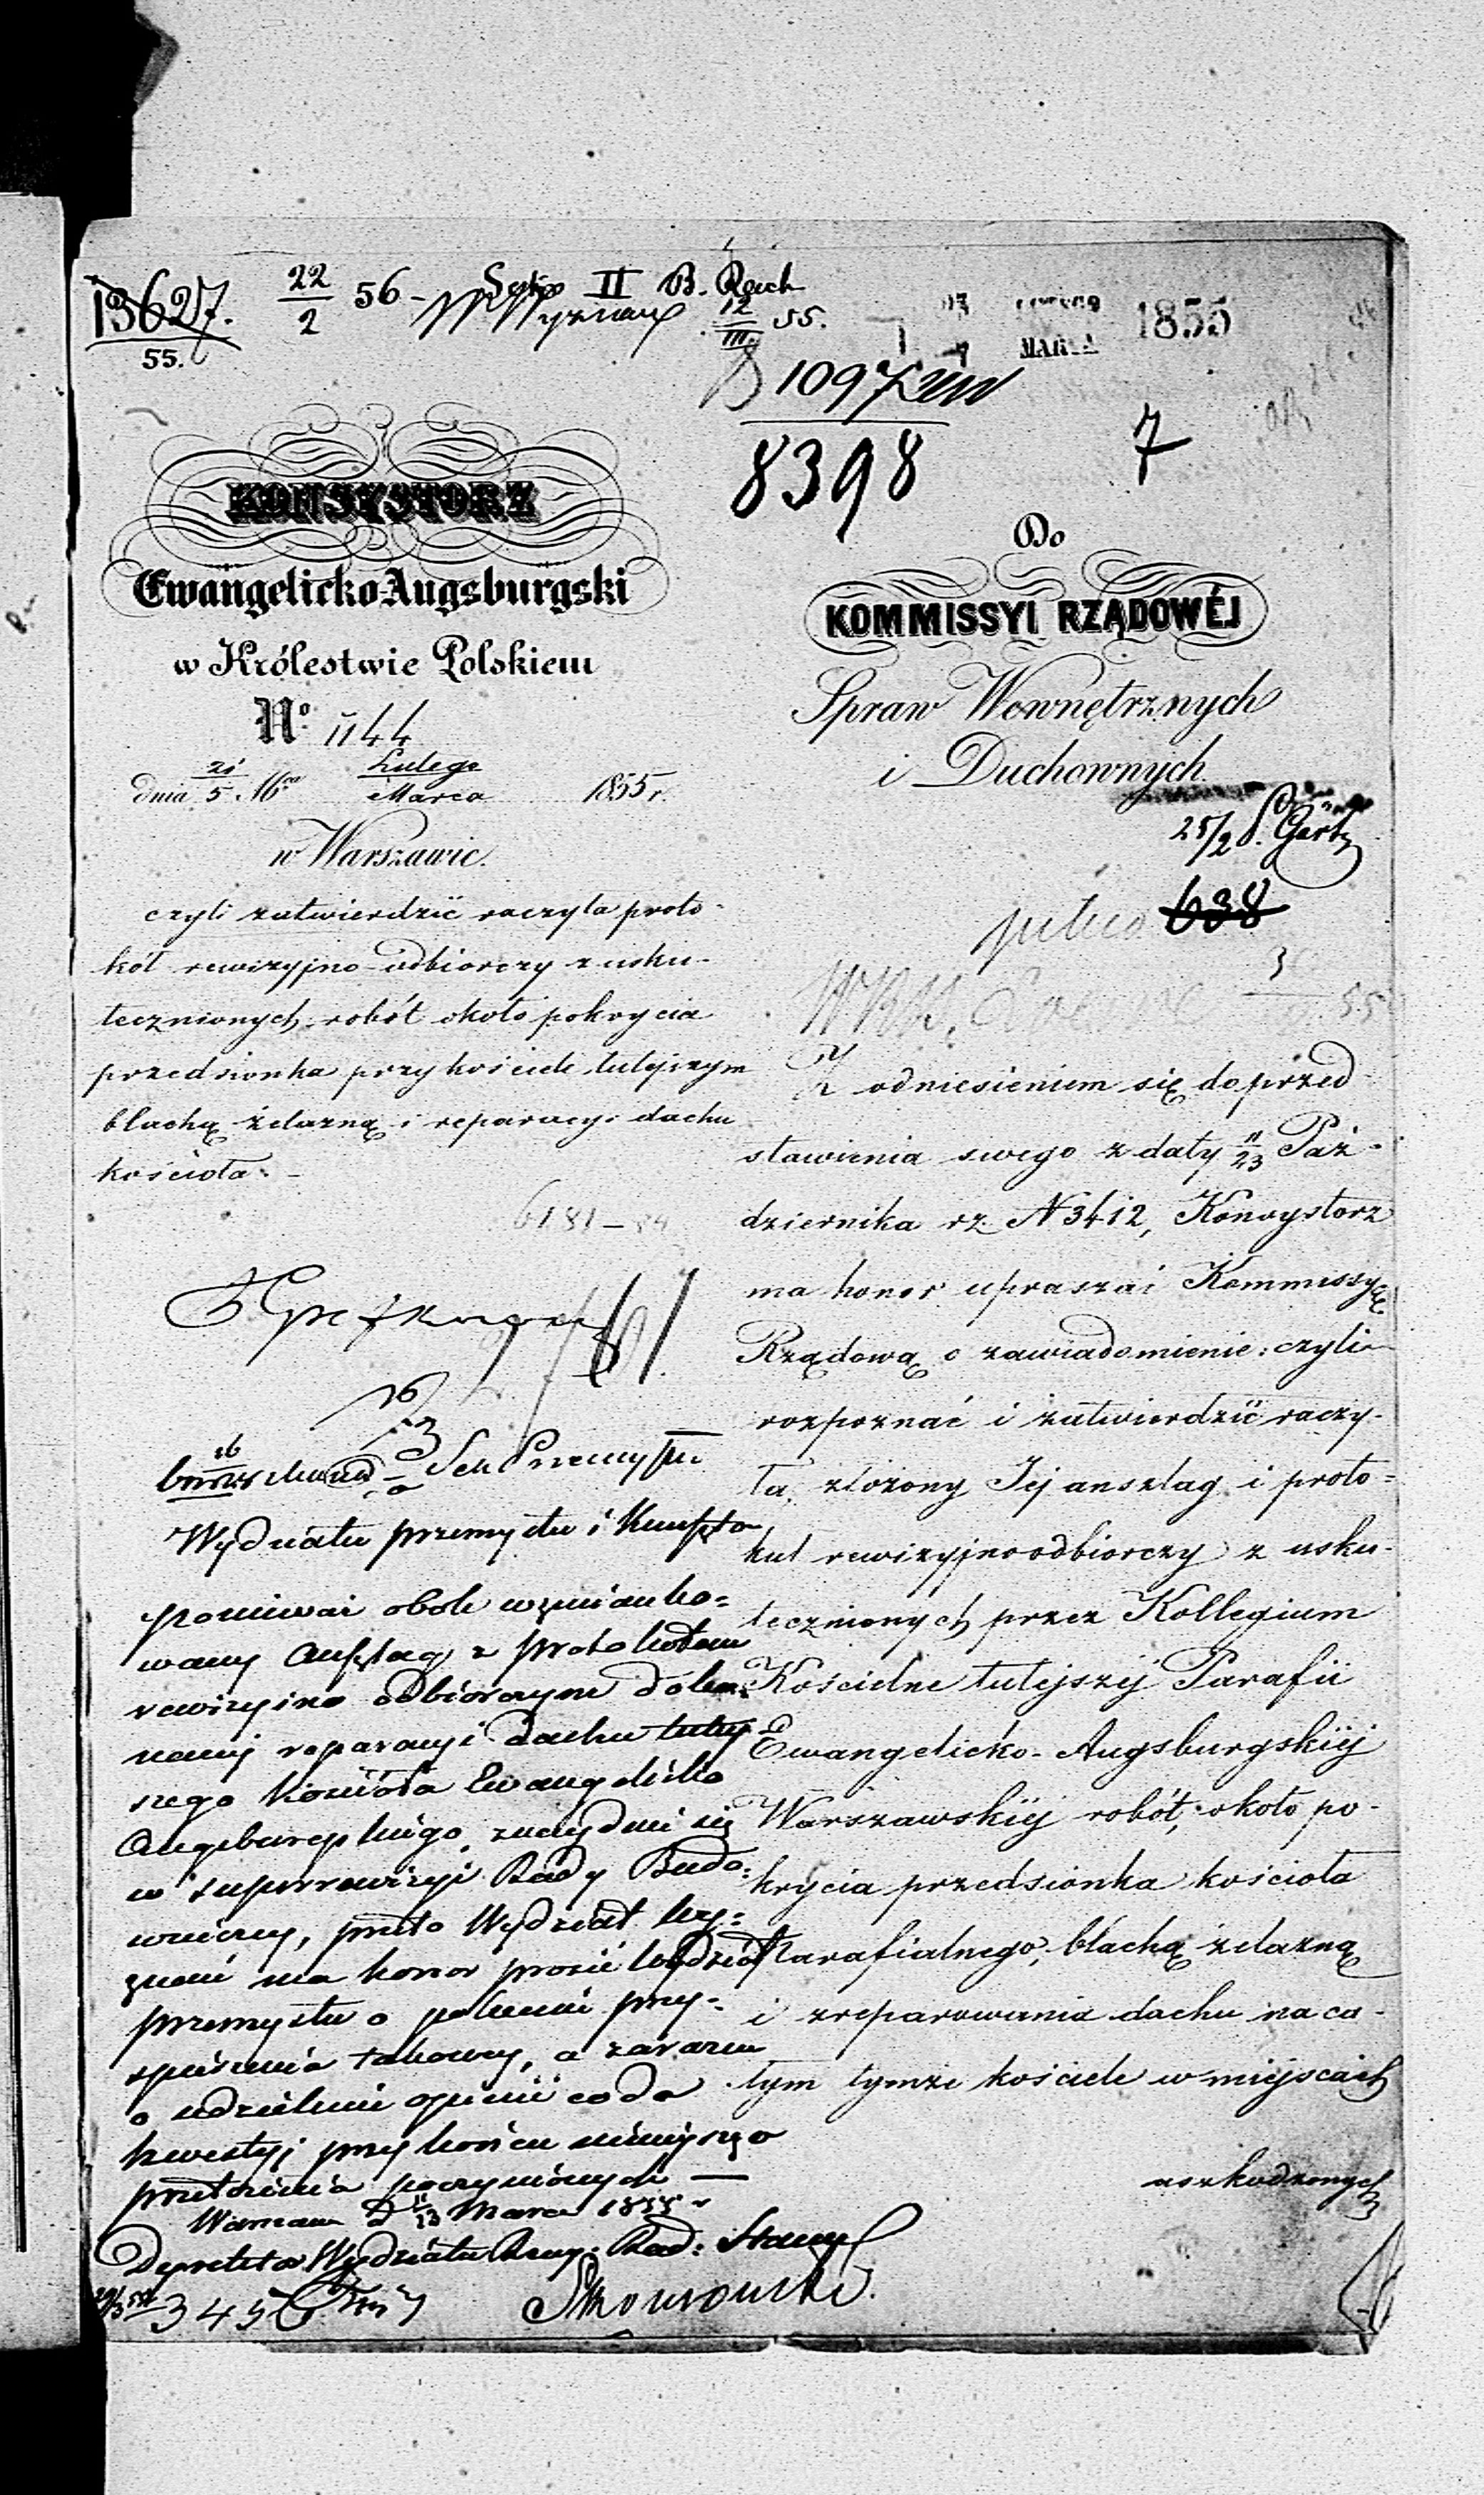 13627.
55.
22/2 56 -
II B. Reich
12/III 55.
MARCA 1855
1097
8398
7
KONSYSTORZ
Ewangelicko-Augsburgski
w Królestwie Polskiem
No. 1144
dnia 21/5 Mca Lutego/Marca 1855 r.
w Warszawie.
czyli zatwierdzić raczyła proto-
kół rewizyjno-odbiorczy z usku-
tecznionych robót około pokrycia
przedsionka przy kościele tutejszym
blachą żelazną i reparacyi dachu
kościoła. -
6181 -
Wydziału przemysłu i Kunsztów
ponieważ obok wzmianko=
wany Anszlag z protokołem
rewizyjno odbiorczym doko-
nanej reparacyi dachu tutej-
szego kościoła Ewangelicko
Augsburgskiego, znajduje się
w superrewizyi Rady Budo-
wniczej, przeto Wydział Wy-
znań ma honor prosić Wydział
przemysłu o polecenie przy-
spieszenia takowej, a zarazem
o udzielenie opinii co do
kwestyi przy końcu niniejszego
przełożenia poczynionych —
Warszawa d 11/23 Marca 1855 r
Dyrektor Wydziału Rzecz. Rad. Stanu
345
Do
KOMMISSYI RZĄDOWÉJ
Spraw Wewnętrznych
i Duchownych
25/2
638
55
Z odniesieniem się do przed
stawienia swego z daty 11/23 Paź-
dziernika rz. N 3412, Konsystorz
ma honor upraszać Kommissyę
Rządową o zawiadomienie: czyli
rozpoznać i zatwierdzić raczy-
ła, złożony Jej anszlag i proto=
kuł rewizyjno odbiorczy z usku-
tecznionych przez Kollegium
Kościelne tutejszéj Parafii
Ewangelicko-Augsburgskiéj
Warszawskiéj robót, około po-
krycia przedsionka kościoła
Parafialnego, blachą żelazną
i zreparowania dachu na ca-
łym tymże kościele w miejscach
uszkodzonych